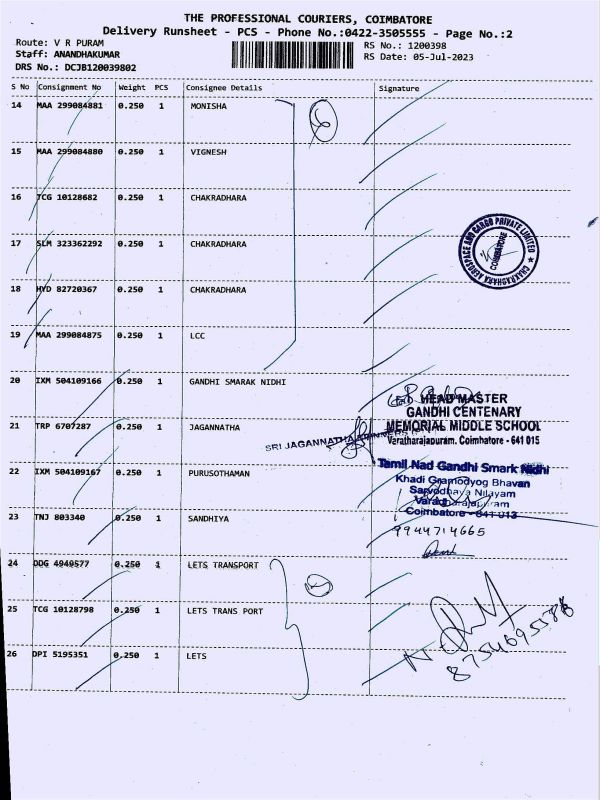 THE PROFESSIONAL COURIERS, COIMBATORE
Delivery Runsheet - PCS - Phone No.:0422-3505555 - Page No.:2
Route: V R PURAM
Staff: ANANDHAKUMAR
DRS No.: DCJB120039802
RS No.: 1200398
RS Date: 05-Jul-2023
S No Consignment No Weight PCS Consignee Details Signature
14 MAA 299084881 0.250 1 MONISHA
15 MAA 299084880 0.250 1 VIGNESH
16 TCG 10128682 0.250 1 CHAKRADHARA
17 SLM 323362292 0.250 1 CHAKRADHARA
CHAKRADHARA AEROSPACE AND CARGO PRIVATE LIMITED
COIMBATORE
18 HYD 82720367 0.250 1 CHAKRADHARA
19 MAA 299084875 0.250 1 LCC
20 IXM 504109166 0.250 1 GANDHI SMARAK NIDHI
HEAD MASTER
GANDHI CENTENARY
MEMORIAL MIDDLE SCHOOL
Varatharajapuram, Coimbatore - 641 015
21 TRP 6707287 0.250 1 JAGANNATHA
SRI JAGANNATHA
22 IXM 504109167 0.250 1 PURUSOTHAMAN
Tamil Nad Gandhi Smark Nidhi
Khadi Gramodyog Bhavan
Sarvodhaya Nilayam
Varadharajapuram
Coimbatore - 641 015
23 TNJ 803340 0.250 1 SANDHIYA
9944714665
24 DDG 4949577 0.250 1 LETS TRANSPORT
25 TCG 10128798 0.250 1 LETS TRANS PORT
26 DPI 5195351 0.250 1 LETS